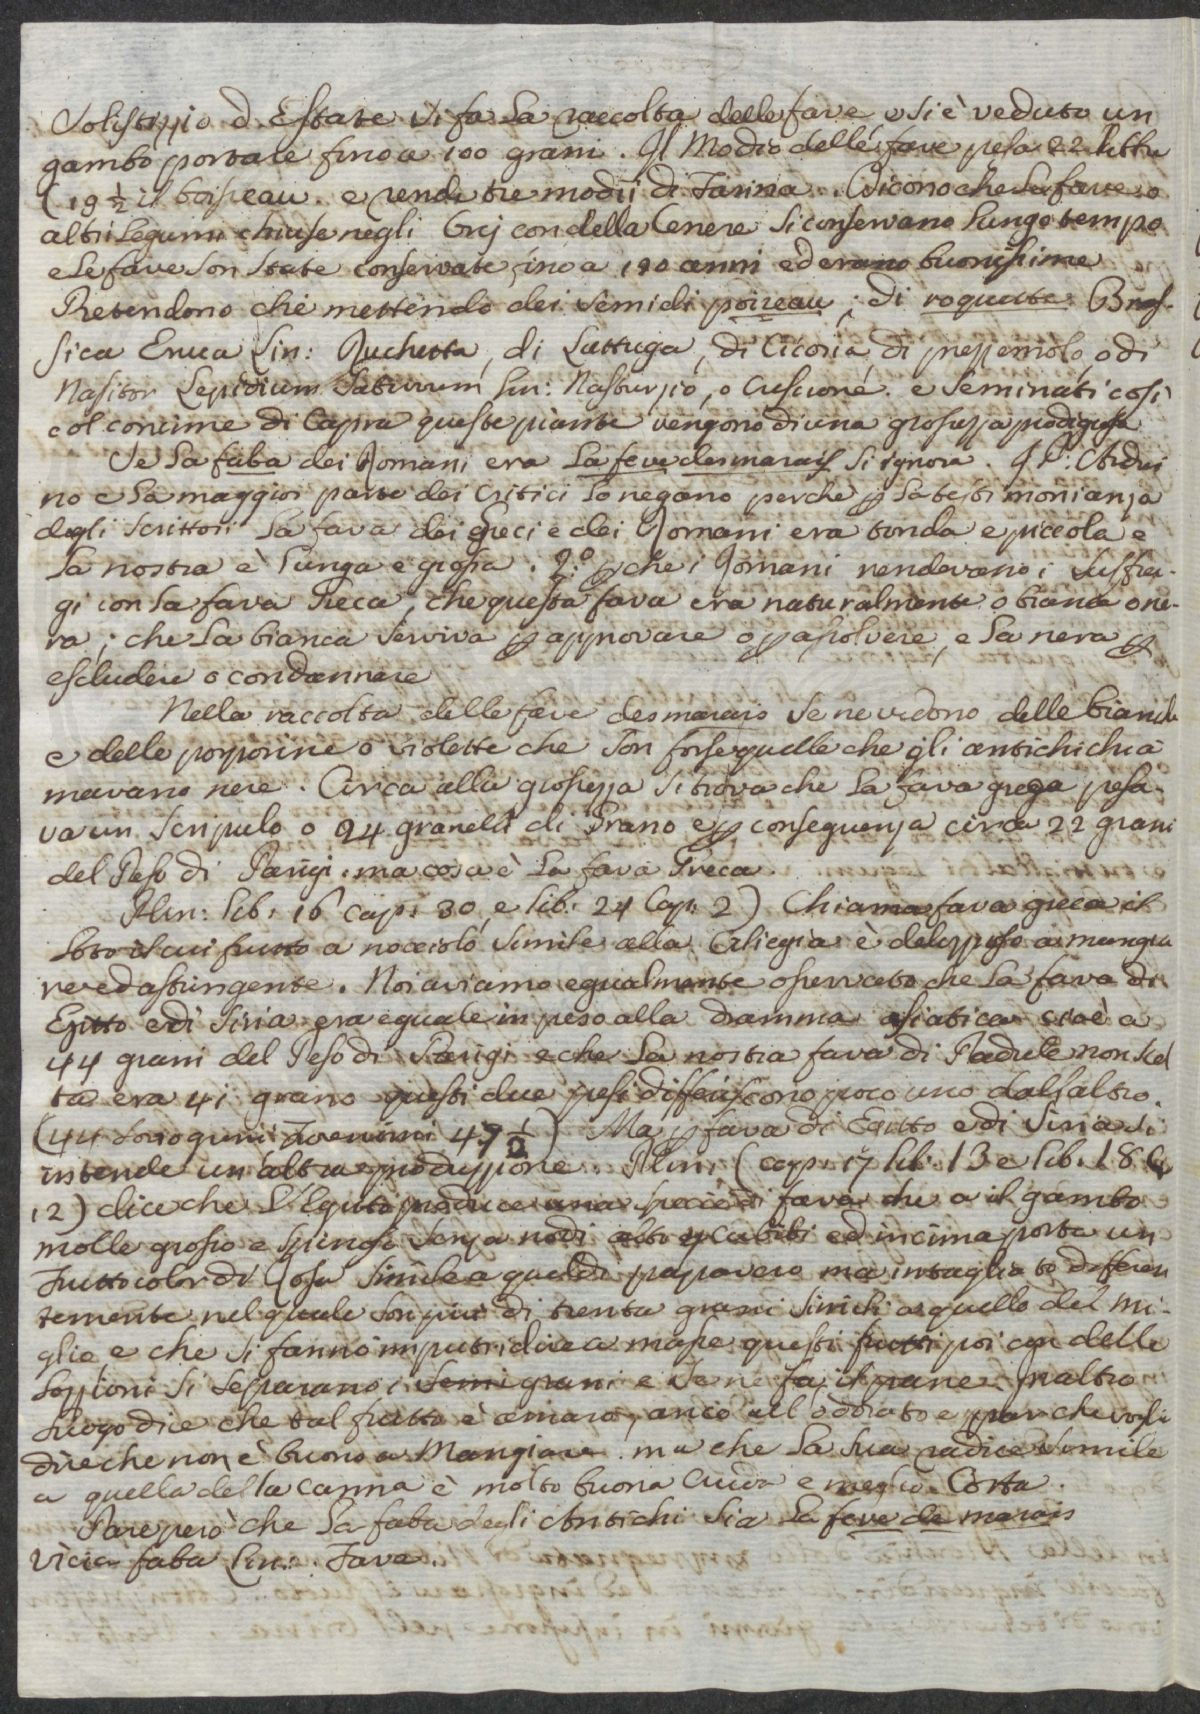 Solistizio d'Estate si fa la raccolta delle fave e si è veduto un
gambo portare fino a 100 grani. Il Modio delle fave pesa 22 Libbre
(19 ½ il boisseau. e rende tre modii di Farina. Dicono che le fave o
altri Legumi chiuse negli Orcj con della Cenere si conservano lungo tempo
e le fave son state conservate fino a 120 anni ed erano buonissime
Pretendono che mettendo dei semi di poireau, di roquette Bras-
sica Eruca Lin: Ruchetta, di Lattuga, di Cicoria di prezzemolo, o di
Nasitor Lepidium Sativum Lin: Nasturzio, o Crescione. e seminati così
col concime di Capra queste piante vengono di una grossezza prodigiosa
Se la faba dei Romani era La feve des marais si ignora. Il P: Ardui
no e la maggior parte dei Critici lo negano perche p la testimonianza
degli Scrittori la fava dei Greci e dei Romani era tonda e piccola e
la nostra è lunga e grossa. 2.º p che i Romani rendevano i suffra-
gi con la fava Greca, che questa fava era naturalmente o bianca o ne-
ra; che la bianca serviva p approvare o p assolvere, e la nera p
escludere o condannare
Nella raccolta delle fave des marais se ne vedono delle bianche
e delle porporine o violette che son forse quelle che gli antichi chia
mavano nere. Circa alla grossezza si trova che la fava grega pesa-
va un Scripulo o 24 granelli di Grano e p conseguenza circa 22 grani
del Peso di Parigi. ma cosa è la fava Greca.
Plin: lib: 16 cap: 30, e lib: 24 Cap: 2) Chiama fava greca il
Loto il cui frutto a nocciolo simile alla Ciliegia è delizioso a mangia
re ed astringente. Noi aviamo egualmente osservato che la fava di
Egitto e di Siria era eguale in peso alla dramma asiatica cioè a
44 grani del Peso di Parigi e che la nostra fava di Padule non scel
ta era 41 grano questi due pesi differiscono poco uno dall'altro.
(44 sono grani Fiorentini 47 ½) Ma p fava di Egitto e di Siria si
intende un'altra produzzione. Plin: (cap: 17 lib: 13 e lib. 18 C
12) dice che L'Egitto produce una specie di fava che a il gambo
molle grosso e senza nodi alto cubiti ed in cima porta un
Frutto color di Rosa simile a quel di papavero ma intagliato differen
temente nel quale son piu di trenta grani simili a quello del mi-
glio e che si fanno imputridire a masse questi frutti poi con delle
lozzioni si separano i semi grani e se ne fa, il pane. In altro
Luogo dice che tal frutto è amaro, anco all'odorato e par che voglia
dire che non è buono a Mangiare. ma che la sua radice simile
a quella della canna è molto buona Cruda e meglio Cotta.
Pare però che la faba degli Antichi sia La feve de marais
Vicia faba Lin: Fava.